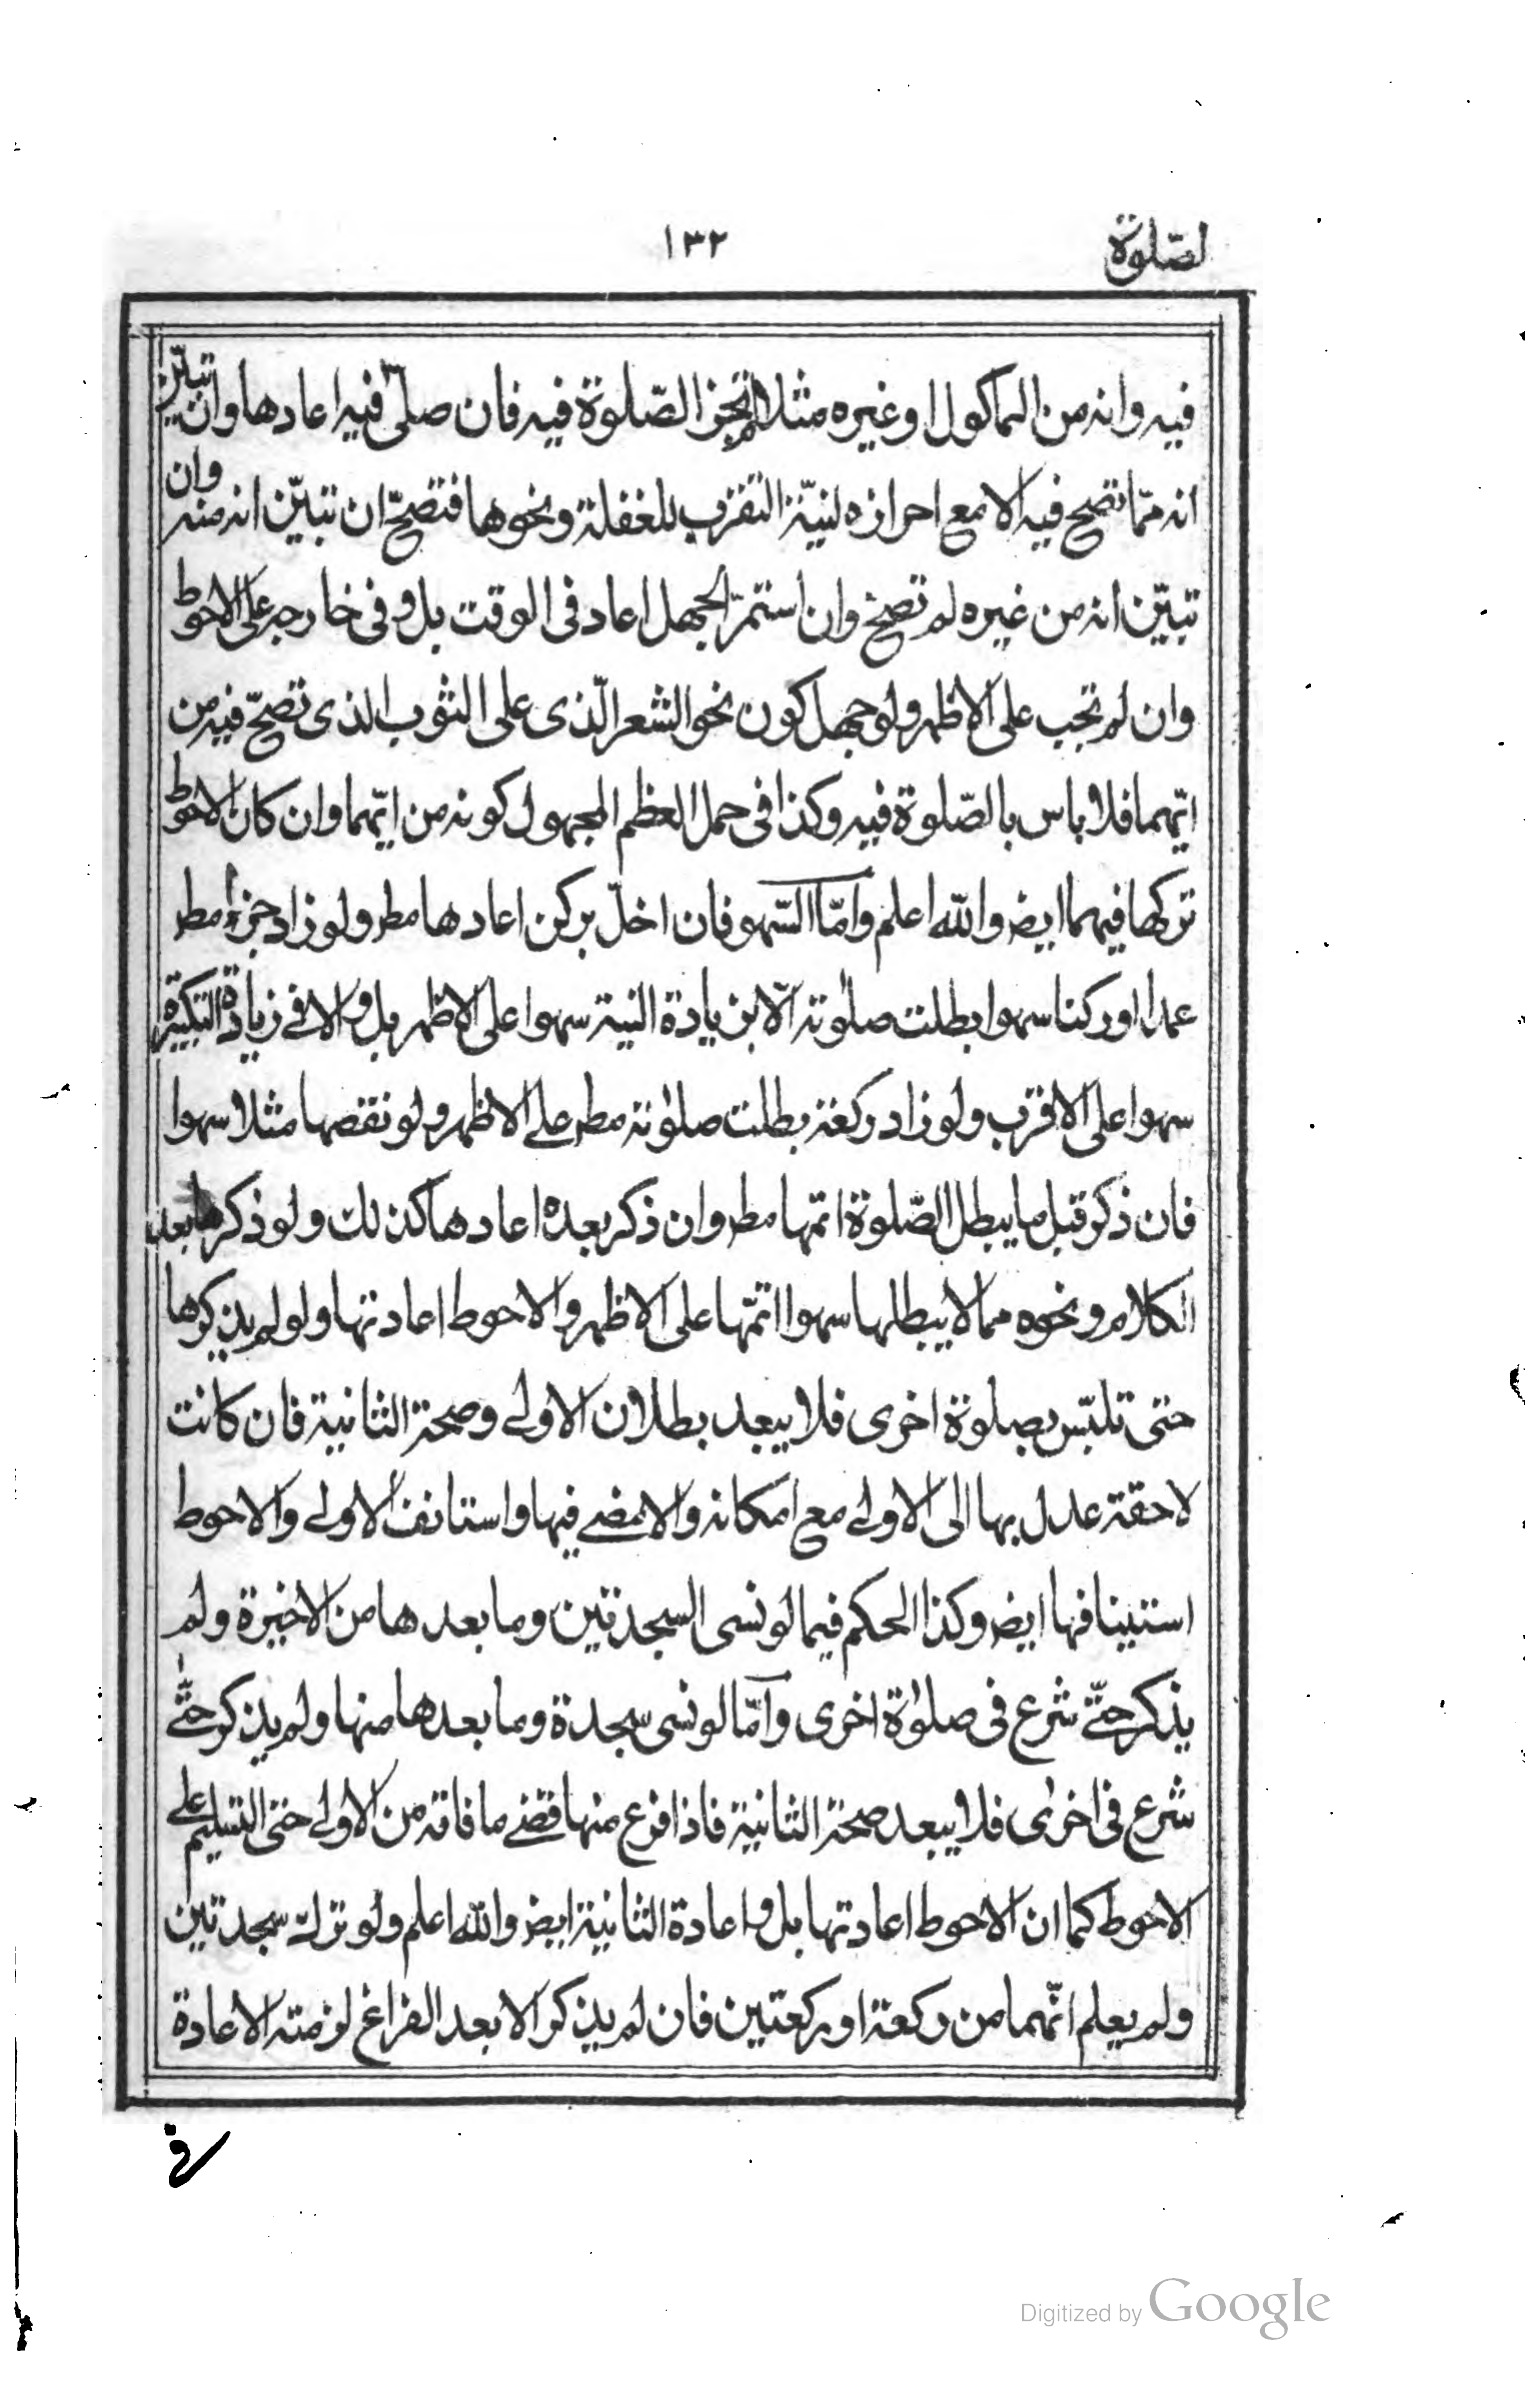 لصّلوة
١٣٢
فيه وانه من الماكول او غيره مثلا لم تجز الصّلوة فيه فان صلّى فيه اعادها وان تبيّن
انه ممّا تصح فيه الا مع احرازه لنيّة التقرب للغفلة ونحوها فتصحّ ان تبيّن انه منه وان
تبيّن انه من غيره لم تصحّ وان استمرّ الجهل اعاد فى الوقت بل وفى خارجه على الاحوط
وان لم تجب على الاظهر ولو جهل كون نحو الشعر الّذى على الثوب الذى تصحّ فيه من
ايّهما فلا باس بالصّلوة فيه وكذا فى حمل العظم المجهول كونه من ايّهما وان كان الاحوط
تركها فيهما ايضر والله اعلم وامّا السّهو فان اخلّ بركن اعادها مطر ولو زاد جزء مطر
عمدا او ركنا سهوا بطلت صلوته الّا بزيادة النية سهوا على الاظهر بل والا فے زيادة التكبيرة
سهوا على الاقرب ولو زاد ركعة بطلت صلوته مطر علے الاظهر ولو نقصها مثلا سهوا
فان ذكر قبل ما يبطل الصّلوة اتمّها مطر وان ذكر بعده اعادها كذلك ولو ذكرها بعد
الكلام ونحوه مما لا يبطلها سهوا اتمّها على الاظهر والاحوط اعادتها ولو لم يذكرها
حتى تلبّس بصلوة اخرى فلا يبعد بطلان الاولے وصحة الثانية فان كانت
لاحقة عدل بها الى الاولے مع امكانه والا مضے فيها واستانف الاولے والاحوط
استينافها ايضر وكذا الحكم فيما لو نسى السجدتين وما بعدها من الاخيرة ولم
يذكر حتّے شرع فى صلوة اخرى وامّا لو نسى سجدة وما بعدها منها ولم يذكر حتّے
شرع فى اخرى فلا يبعد صحة الثانية فاذا فرغ منها قضے ما فاته من الاولے حتى التسليم علے
الاحوط كما ان الاحوط اعادتها بل واعادة الثانية ايضر والله اعلم ولو ترك سجدتين
ولم يعلم انّهما من ركعة او ركعتين فان لم يذكر الا بعد الفراغ لزمته الاعادة
فے
Digitized by Google